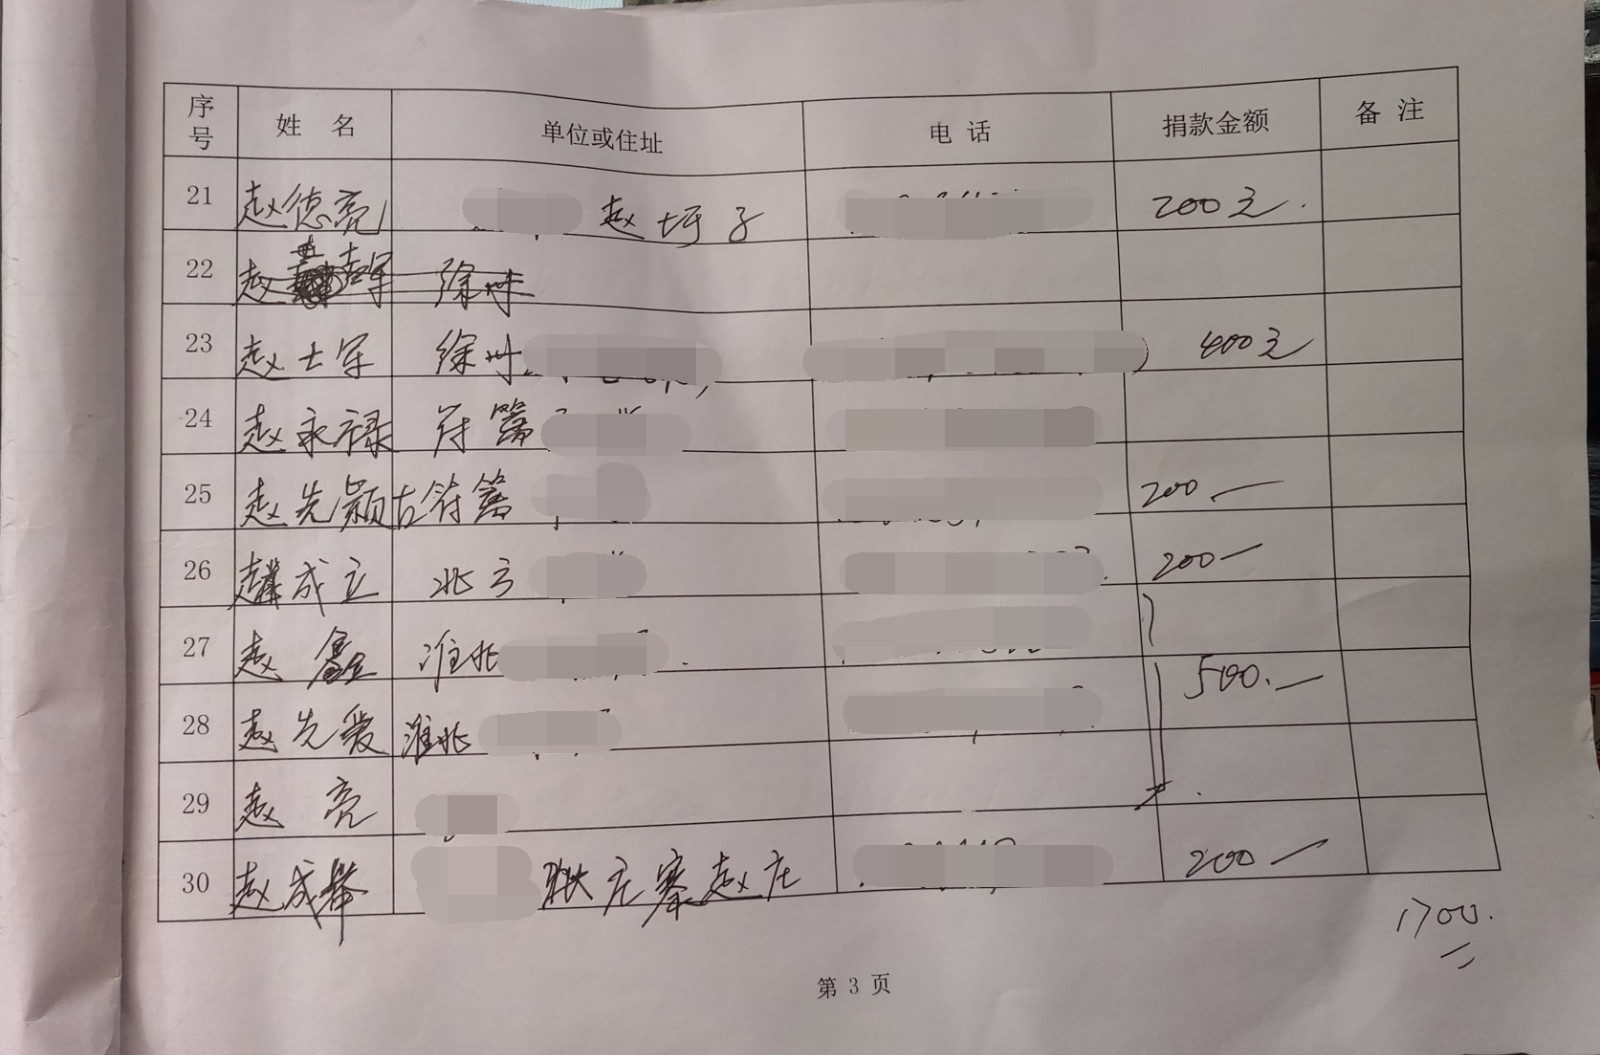 序号 姓 名 单位或住址 电 话 捐款金额 备 注
21 赵德亮 赵坪子 200元.
22 赵 军 徐州
23 赵士军 徐州 400元
24 赵永禄 符篱
25 赵先颍 古符篱 200.—
26 赵成立 北方 200—
27 赵鑫 淮北
28 赵先爱 淮北 500.—
29 赵亮
30 赵成举 耿庄寨赵庄 200—
1700.
第 3 页